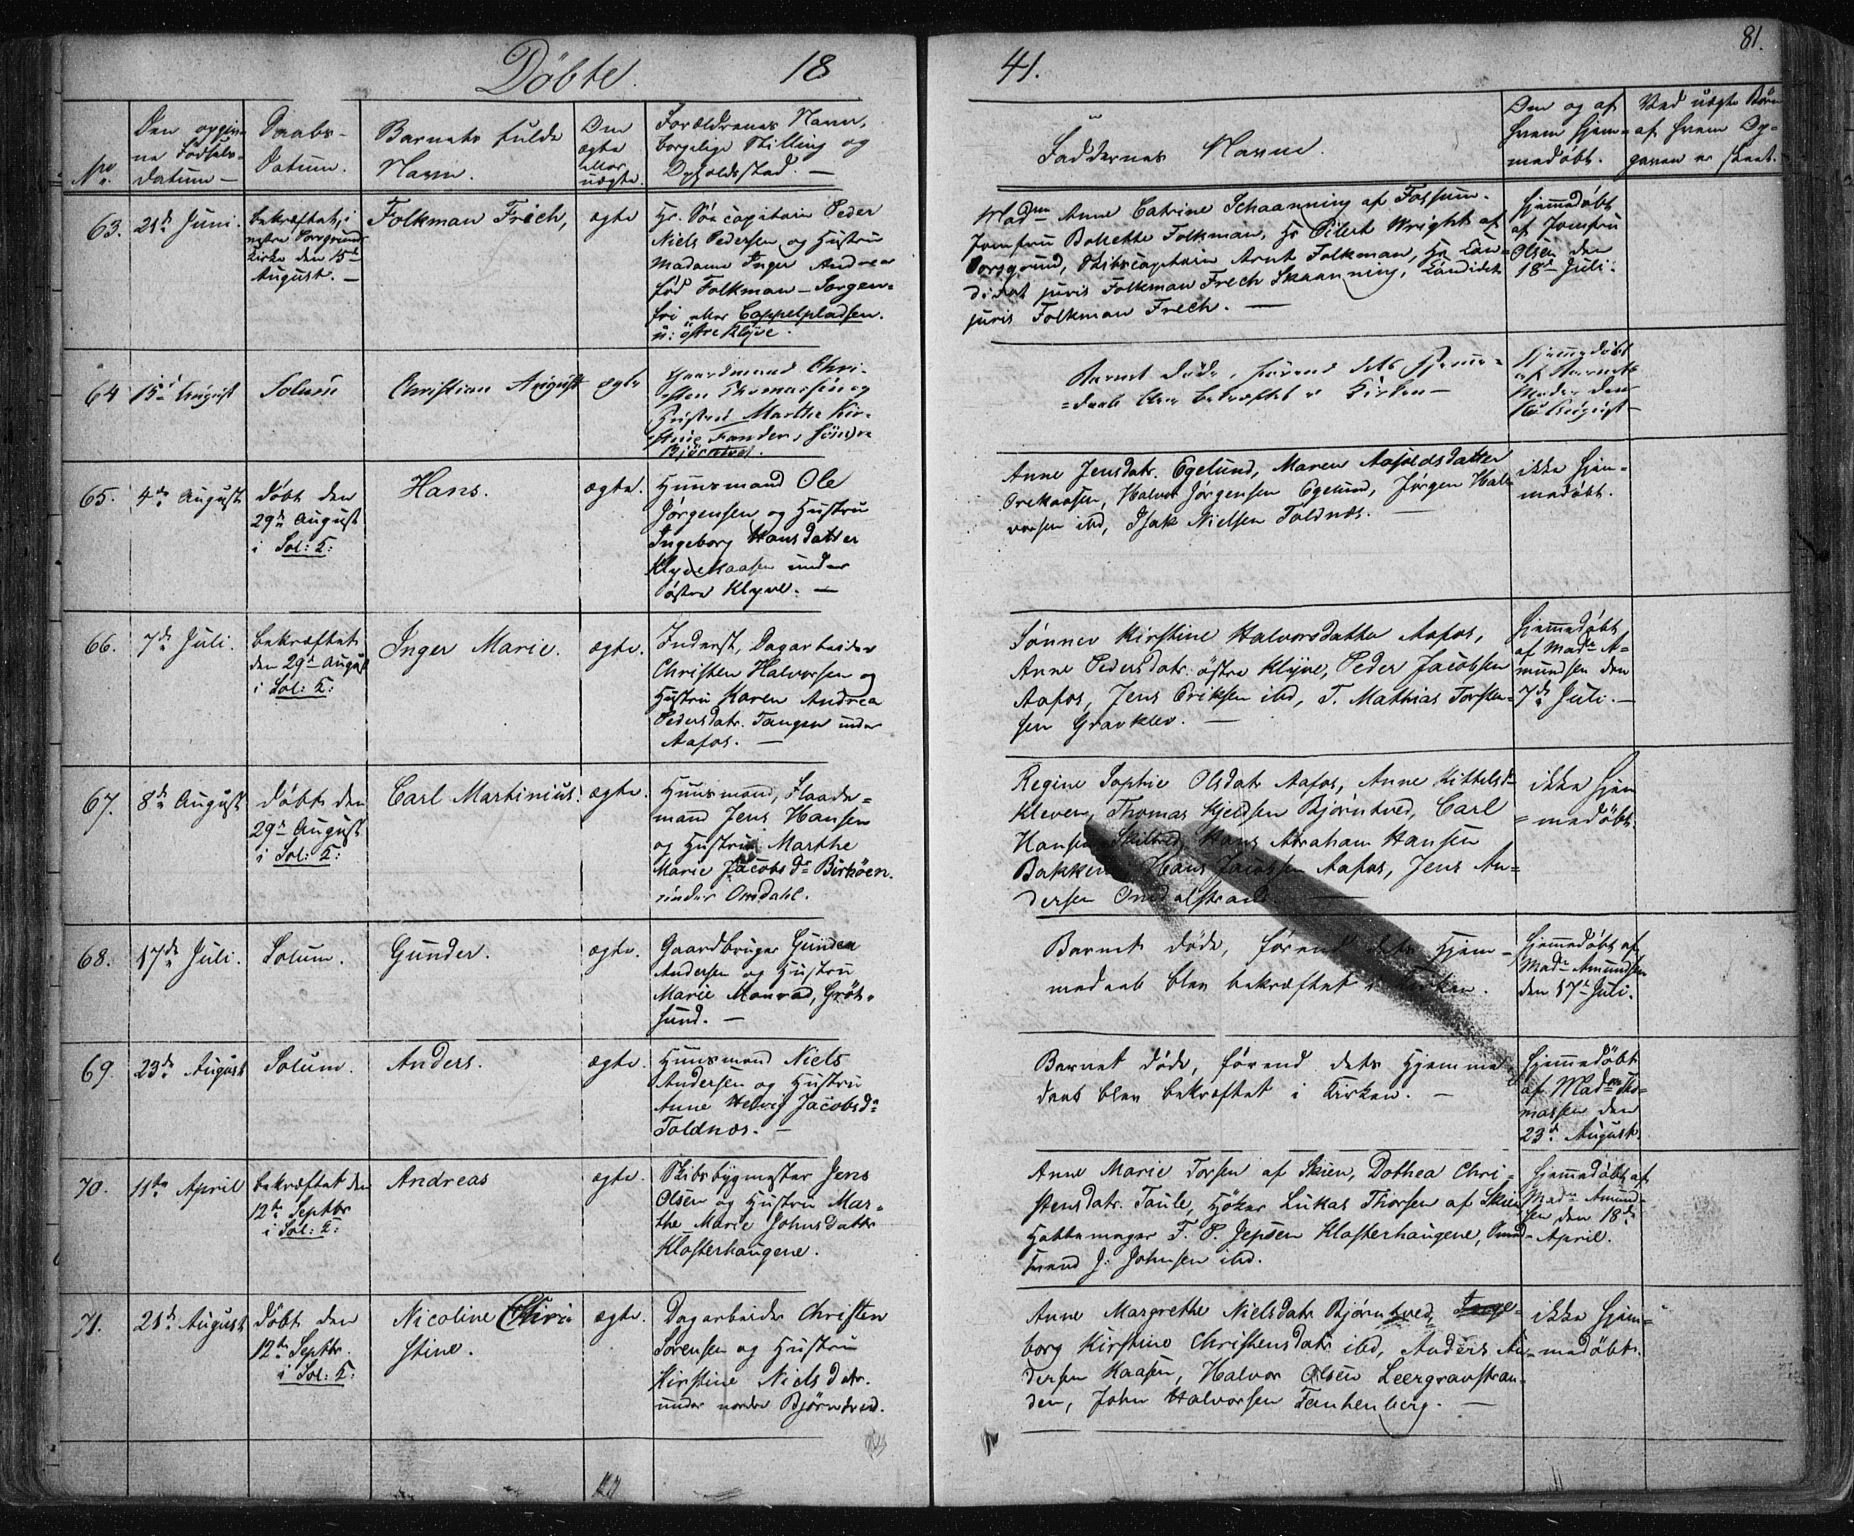 Döbte. 18 41. 81.
No.
Den opgiv-
ne Fødsels-
datum —
Daabs-
Datum.
Barnets fulde
Navn.
Om
ægte
eller
uægte.
Forældrenes Navn,
borgelige Stilling og
Opholdsted. —
Faddernes Navne.
Om og af
hvem hjem-
medøbt.
Ved uægte Børn
af hvem Op-
gaven er skeet.
63.
21de Juni.
bekræftet i
vestre Porsgrunds
Kirke den 15de
August. —
Folkman Frich,
ægte
Hr. Söecapitain Peder
Niels Pedersen og Hustru
Madame Inger Andrea
fød Folkman — Sorgen-
fri eller Cappelpladsen.
u: östre Klyve.
Madm Anne Catrine Schaanning af Fossum.
Jomfru Bollette Folkman, Hr Eilert Wright af
Porsgrund, Skibscapitain Arnt Folkman, Hr Can-
didat juris Folkman Frech Skaanning, Candidat
juris Folkman Frech. —
Hjemmedøbt
af Jomfru
Olsen den
18de Juli.
64
15de August
Solum
Christian August
ægte
Gaardmand Chri-
sten Thomassen og
Hustru Marthe Kir-
stine Fander, söndre
Björntvet.
Barnet døde, førend dets Hjemme-
=daab blev bekræftet i Kirken —
Hjemmedøbt
af Barnets
Moder den
August —
65.
4de August
døbt den
29de August
i Sol: K:
Hans.
ægte.
Huusmand Ole
Jørgensen og Hustru
Ingeborg Hansdatter
Klyvekaasen under
østre Klyve. —
Anne Jensdatr. Egelund, Maren
Orekaasen, Halvor Jørgensen Egelund, Jørgen Hal-
vorsen ibd, Isak Nielsen Toldnæs. —
ikke hjem-
medøbt.
66.
7de Juli.
bekræftet
den 29de August
i Sol: K:
Inger Marie.
ægte.
Inderst, Dagarbeider
Christen Halvorsen og
Hustru Karen Andrea
Pedersdatr. Tangen under
Aafos. —
Kirstine Halvorsdatter Aafos,
Anne Pedersdatr. östre Klyve, Peder Jacobsen
Aafos, Jens Eriksen ibd, T. Mathias Torste-
sen Gravklev. —
Hjemmedøbt
af Madm A-
mundsen den
7de Juli. —
67.
8de August
døbt den
29de August
i Sol: K:
Carl Martinius.
ægte.
Huusmand, Flaade-
mand Jens Hansen
og Hustru Marthe
Marie Jacobsdr Birköen.
under Omdahl.
Regine Sophie Olsdatr Aafos, Anne Kittelsd-
Kleven, Thomas Kjeldsen Bjørntved, Carl
Hansen Skilbred, Hans Abraham Hansen
Bakken, Hans Jacobsen Aafos, Jens An-
dersen Omdalstrand. —
ikke hjem
=medøbt.
68.
17de Juli.
Solum.
Gunder.
ægte.
Gaardbruger Gunder
Andersen og Hustru
Marie Monrad, Gröt-
sund. —
Barnet døde, førend dets Hjem-
medaab blev bekræftet i Kirken.
Hjemmedøbt af
Madm Amundsen
den 17de Juli.
69.
23de August
Solum.
Anders.
ægte.
Huusmand Niels
Andersen og Hustru
Anne Helvig Jacobsdr
Toldnæs. —
Barnet døde, førend dets Hjemme
daab blev bekræftet i Kirken. —
Hjemmedøbt
af Madm Tho-
massen den
23de August.
70.
11te April
bekræftet den
12te Septbr
i Sol: K:
Andreas
ægte.
Skibsbygmester Jens
Olsen og Hustru Mar-
the Marie Johnsdatr
Klosterhaugene.
Anne Marie Torsen af Skien, Dothea Chri-
stensdatr. Taule, Höker Lukas Thorsen af Skien
Hattemager T. P. Jepsen Klosterhaugene,
J. Johnsen ibd.
Hjemmedøbt af
Madm Amund-
sen den 18de
April.
71.
21de August
Døbt den
12te Septbr.
i Sol: K:
Nicoline Chri-
stine.
ægte.
Dagarbeider Christen
Sørensen og Hustru
Kirstine Nielsdatr.
under nordre Bjørntved.
Anne Margrethe Nielsdatr Bjørntved, Inge-
borg Kirstine Christensdatr ibd, Anders An-
dersen Kaasen, Halvor Olsen Leergravstran-
den, John Halvorsen Fankenberg. —
ikke hjem-
medøbt.